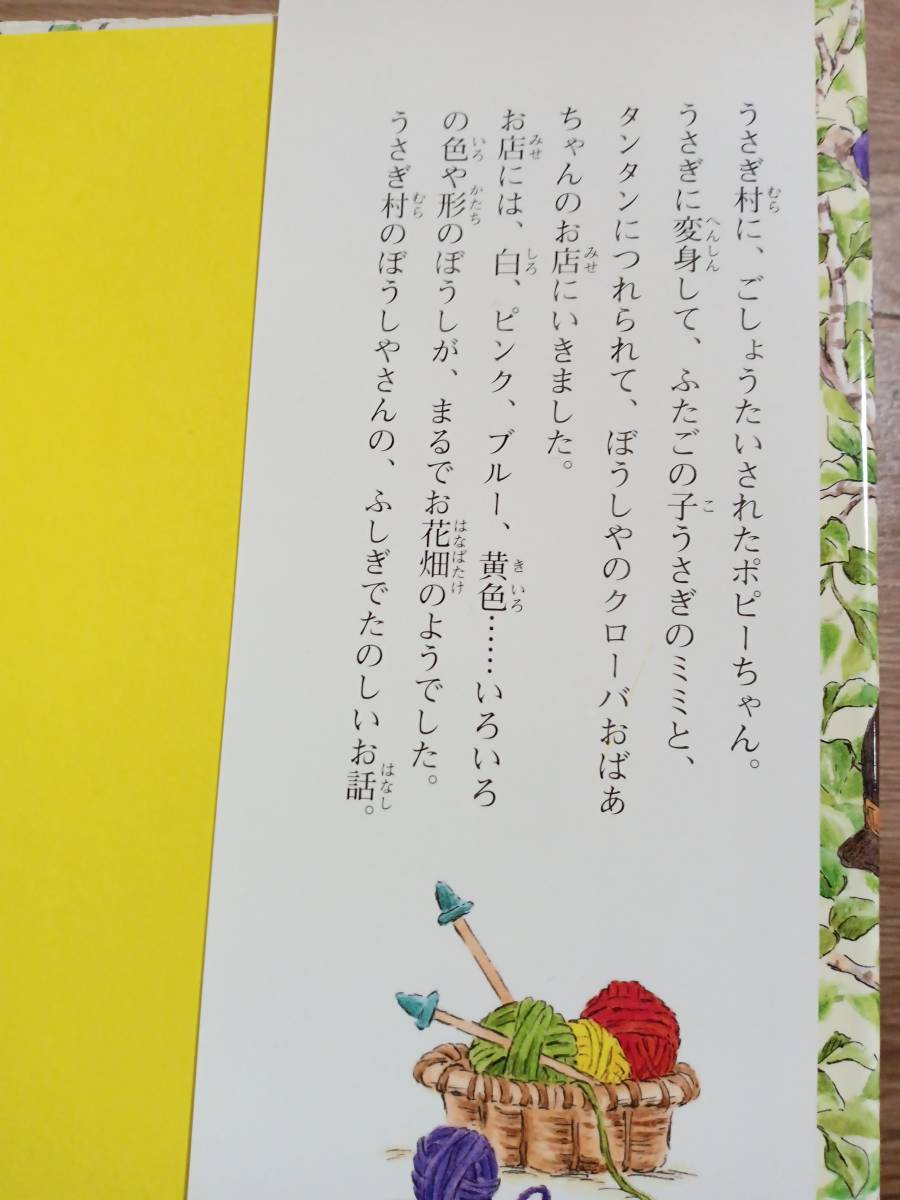 うさぎ村に、ごしょうたいされたポピーちゃん。
うさぎに変身して、ふたごの子うさぎのミミと、
タンタンにつれられて、ぼうしやのクローバおばあ
ちゃんのお店にいきました。
お店には、白、ピンク、ブルー、黄色……いろいろ
の色や形のぼうしが、まるでお花畑のようでした。
うさぎ村のぼうしやさんの、ふしぎでたのしいお話。